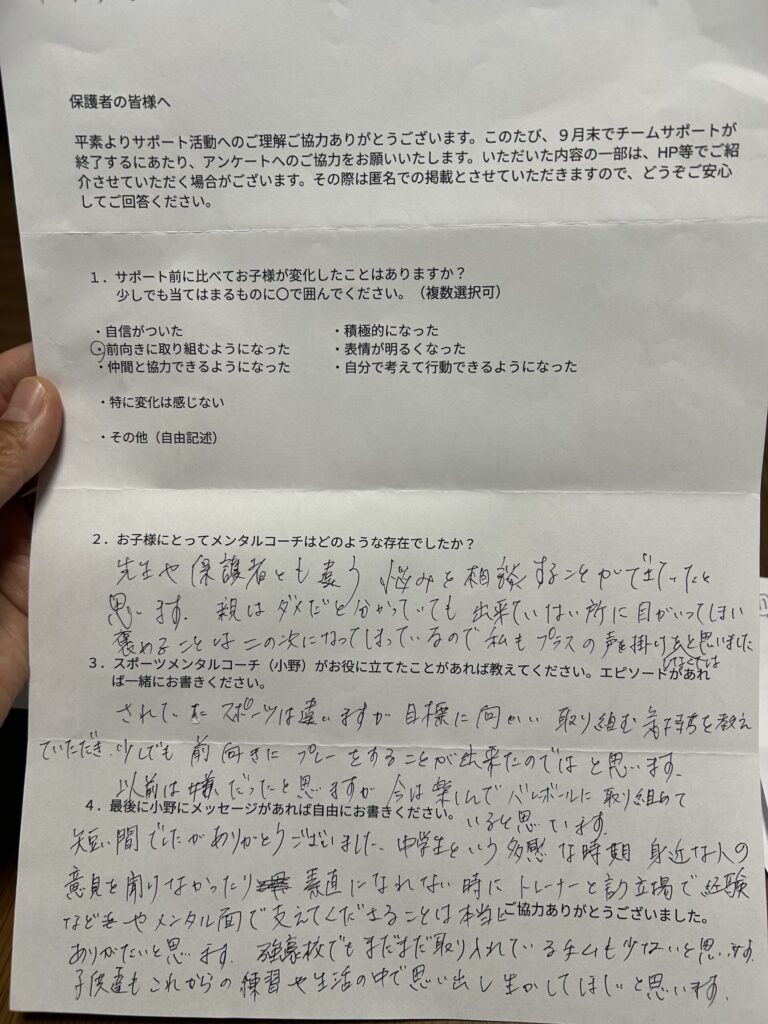 保護者の皆様へ
平素よりサポート活動へのご理解ご協力ありがとうございます。このたび、9月末でチームサポートが
終了するにあたり、アンケートへのご協力をお願いいたします。いただいた内容の一部は、HP等でご紹
介させていただく場合がございます。その際は匿名での掲載とさせていただきますので、どうぞご安心
してご回答ください。
1．サポート前に比べてお子様が変化したことはありますか？
少しでも当てはまるものに〇で囲んでください。（複数選択可）
・自信がついた
・積極的になった
・前向きに取り組むようになった
・表情が明るくなった
・仲間と協力できるようになった
・自分で考えて行動できるようになった
・特に変化は感じない
・その他（自由記述）
2．お子様にとってメンタルコーチはどのような存在でしたか？
先生や保護者とも違う 悩みを相談することができていたと
思います。親はダメだと分かっていても 出来ていない所に目がいってしまい
褒めることは二の次になってしまっているので 私もプラスの声を掛け
しなくては
と思いました
3．スポーツメンタルコーチ（小野）がお役に立てたことがあれば教えてください。エピソードがあれ
ば一緒にお書きください。
されていた スポーツは違いますが 目標に向かい 取り組む 気持ちを教え
ていただき、少しでも 前向きに プレーをすることが出来たのでは と思います。
以前は嫌だったと思いますが 今は楽しんでバレーボールに取り組めて
いると思います。
4．最後に小野にメッセージがあれば自由にお書きください。
短い間でしたがありがとうございました。中学生という 多感な時期 身近な人の
意見を聞けなかったり 素直になれない時に トレーナーと 立場で経験
など やメンタル面で支えてくださることは本当に
ご協力ありがとうございました。
ありがたいと思います。強豪校でもまだまだ取り入れているチームも少ないと思います。
子供達もこれからの練習や生活の中で思い出し 生かしてほしいと思います。